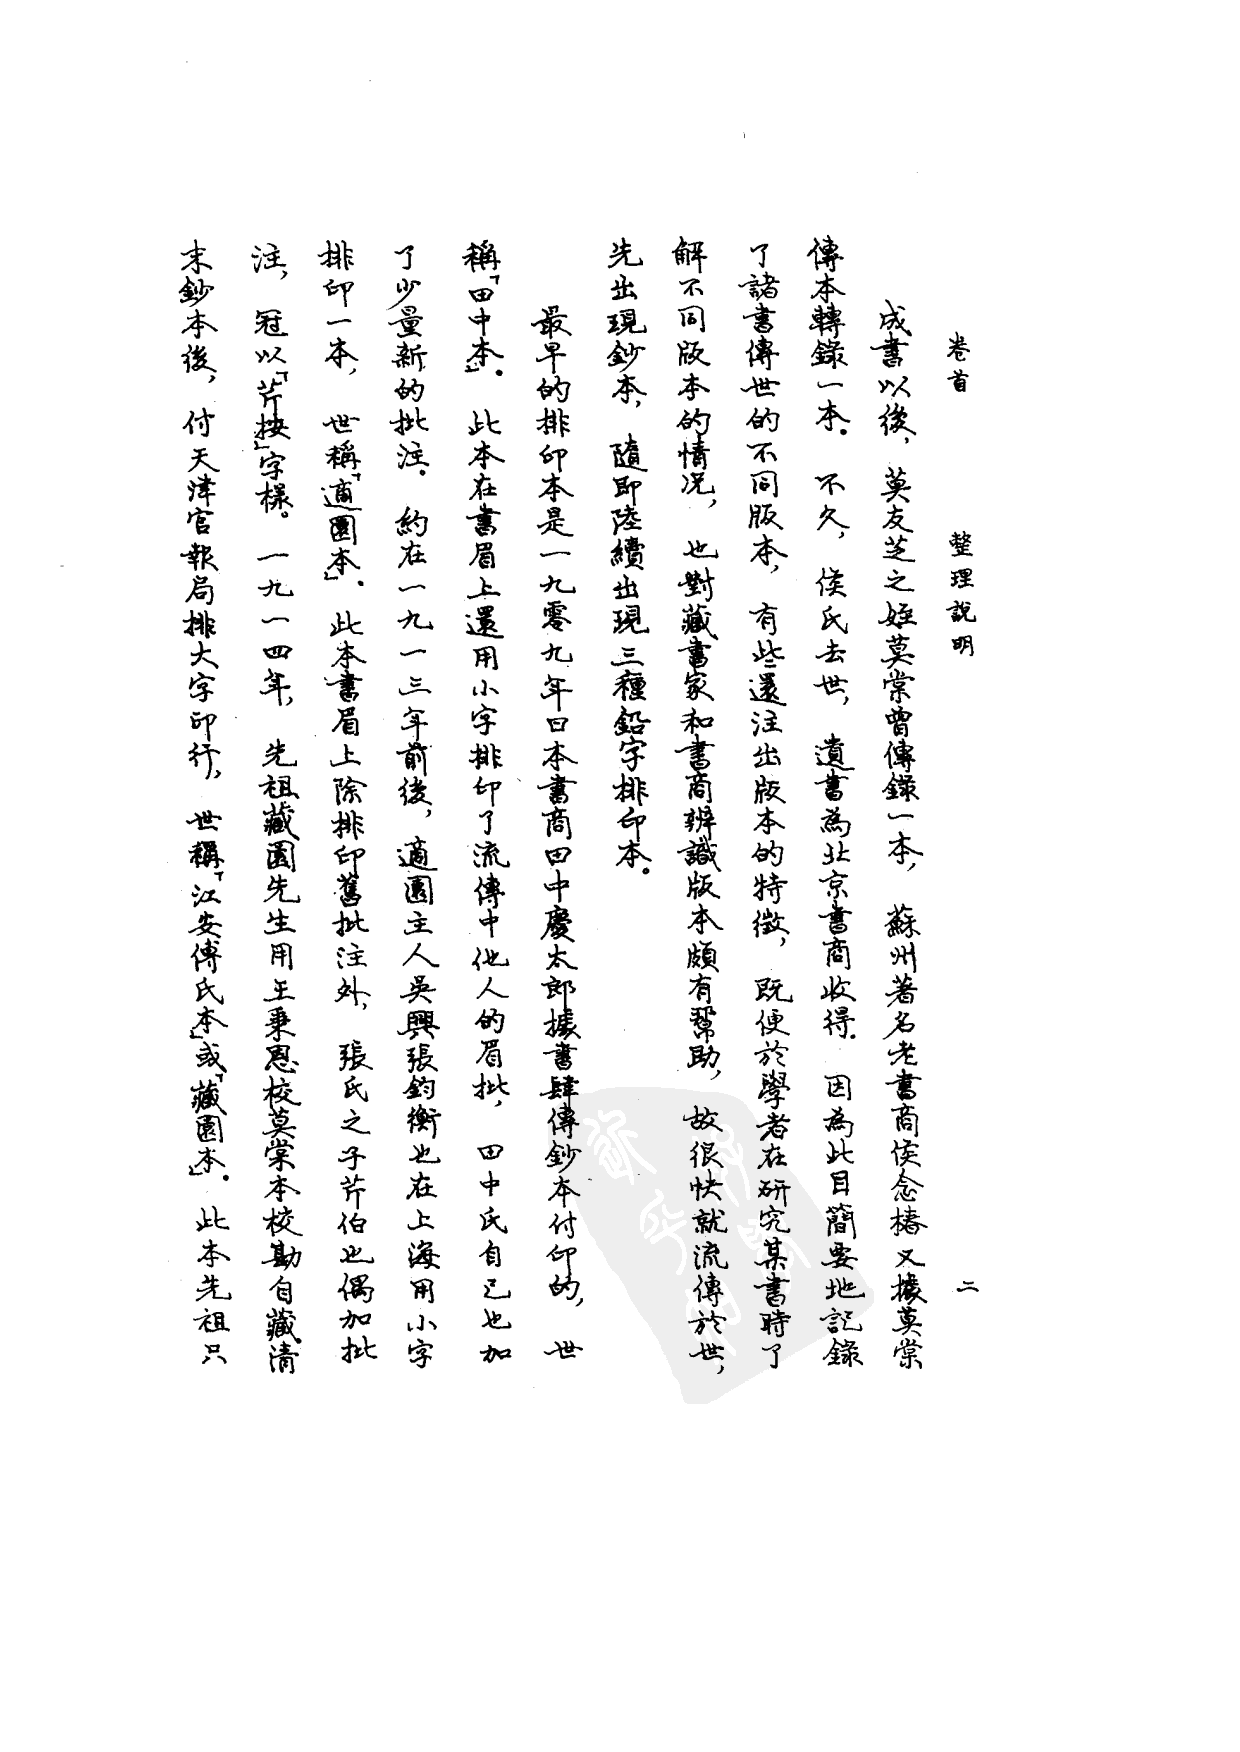 卷首　整理說明　二
成書以後，莫友芝之姪莫棠曾傳錄一本，蘇州著名老書商侯念椿又據莫棠
傳本轉錄一本。不久，侯氏去世，遺書為北京書商收得。因為此目簡要地記錄
了諸書傳世的不同版本，有些還注出版本的特徵，既便於學者在研究某書時了
解不同版本的情况，也對藏書家和書商辨識版本頗有幫助，故很快就流傳於世，
先出現鈔本，隨即陸續出現三種鉛字排印本。
最早的排印本是一九零九年日本書商田中慶太郎據書肆傳鈔本付印的，世
稱「田中本」。此本在書眉上還用小字排印了流傳中他人的眉批，田中氏自己也加
了少量新的批注。約在一九一三年前後，適園主人吳興張鈞衡也在上海用小字
排印一本，世稱「適園本」。此本書眉上除排印舊批注外，張氏之子芹伯也偶加批
注，冠以「芹按」字樣。一九一四年，先祖藏園先生用王秉恩校莫棠本校勘自藏清
末鈔本後，付天津官報局排大字印行，世稱「江安傅氏本」或「藏園本」。此本先祖只